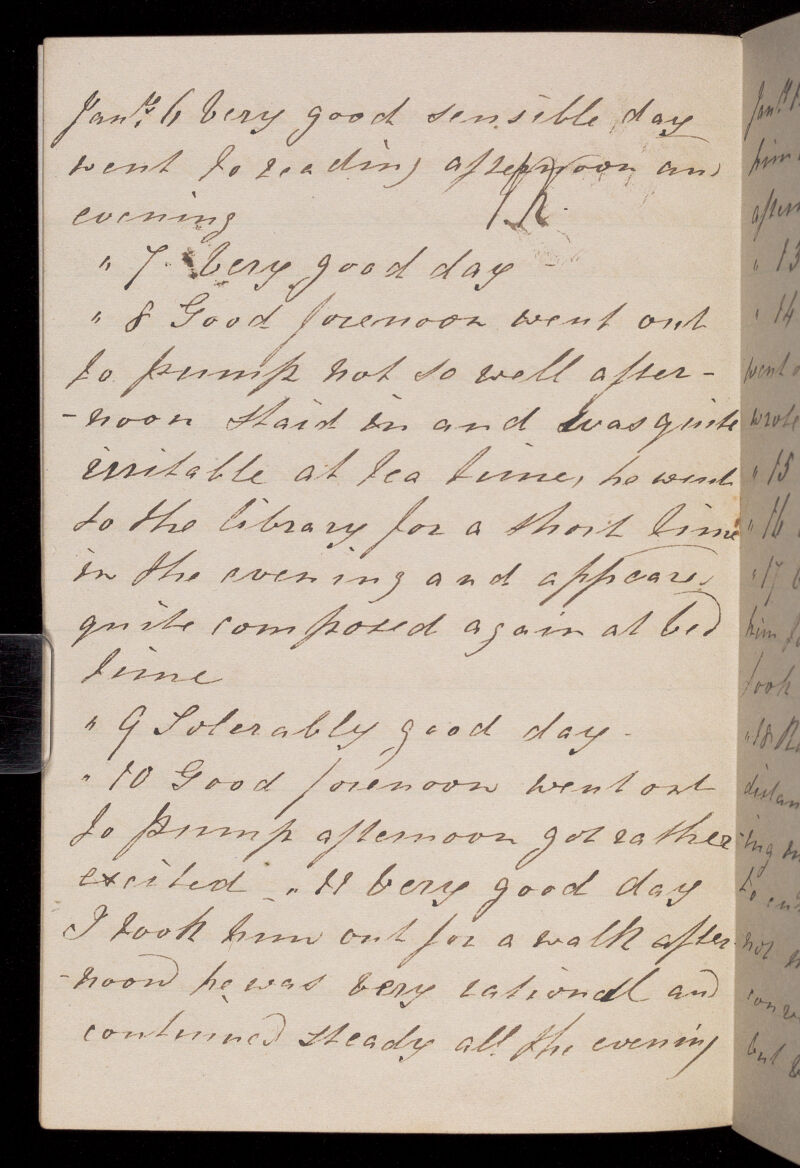 Jany. 6 Very good sensible day
went to reading afternoon and
evening
" 7. Very good day
" 8 Good forenoon went out
to pump not so well after-
-noon staid in and was quite
irritable at tea time, he went
to the library for a short time
in the evening and appeared
quite composed again at bed
time
" 9 Tolerably good day -
" 10 Good forenoon went out
to pump afternoon got rather
excited " 11 Very good day
I took him out for a walk after-
-noon he was very rational and
continued steady all the evening
Jany 1
him
aftern
" 13
" 14
went o
wrote
" 15
" 16
" 17
him fo
took
" 18
distan
-ing
to
not
but